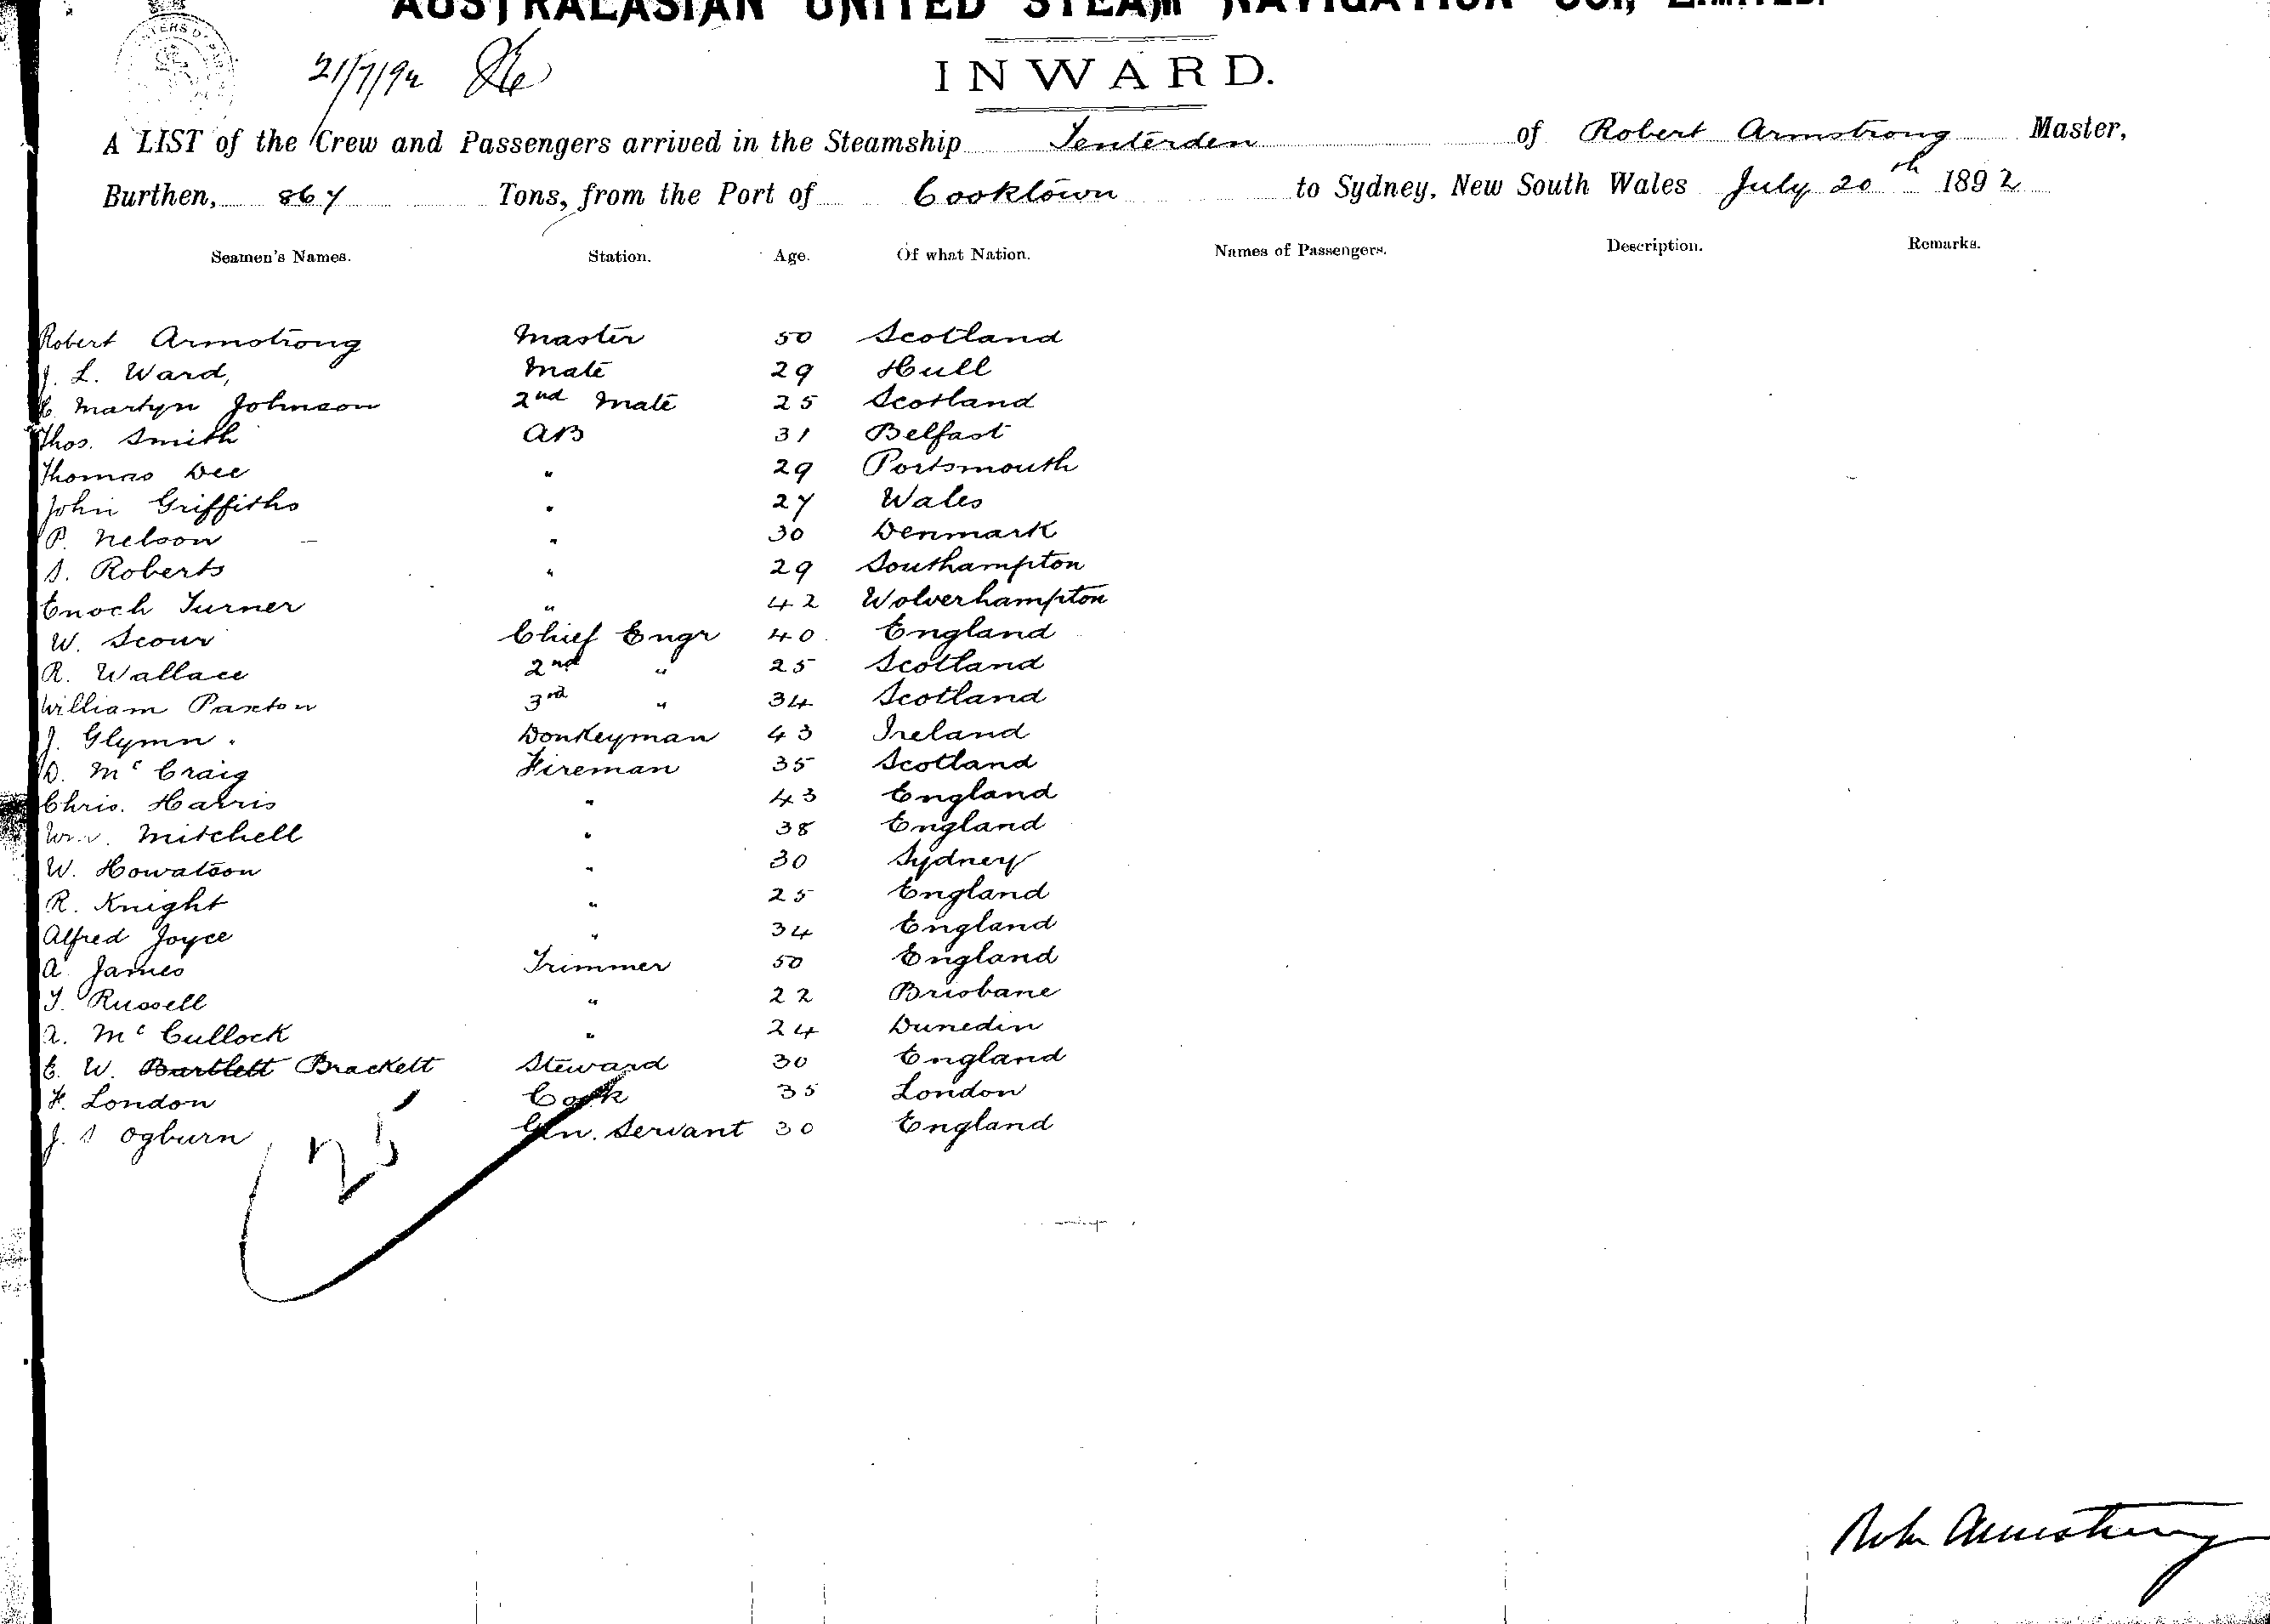 AUSTRALASIAN UNITED STEAM NAVIGATION CO., LIMITED.
21/7/92
INWARD.
A LIST of the Crew and Passengers arrived in the Steamship Tenterden of Robert Armstrong Master,
Burthen, 867 Tons, from the Port of Cooktown to Sydney, New South Wales July 20th 1892
Seamen's Names. Station. Age. Of what Nation. Names of Passengers. Description. Remarks.
Robert Armstrong Master 50 Scotland
J. L. Ward, Mate 29 Hull
Martyn Johnson 2nd Mate 25 Scotland
Thos. Smith AB 31 Belfast
Thomas Dee " 29 Portsmouth
John Griffiths " 27 Wales
P. Nelson " 30 Denmark
S. Roberts " 29 Southampton
Enoch Turner " 42 Wolverhampton
W. Scour Chief Engr 40 England
R. Wallace 2nd " 25 Scotland
William Paxton 3rd " 34 Scotland
J. Glymn. Donkeyman 43 Ireland
D. Mc Craig Fireman 35 Scotland
Chris. Harris " 43 England
Wm. Mitchell " 38 England
W. Howatson " 30 Sydney
R. Knight " 25 England
Alfred Joyce " 34 England
A. James Trimmer 50 England
T. Russell " 22 Brisbane
A. Mc Cullock " 24 Dunedin
E. W. Bartlett Brackett Steward 30 England
F. London Cook 35 London
J. S Ogburn Gen. Servant 30 England
25
Robt Armstrong